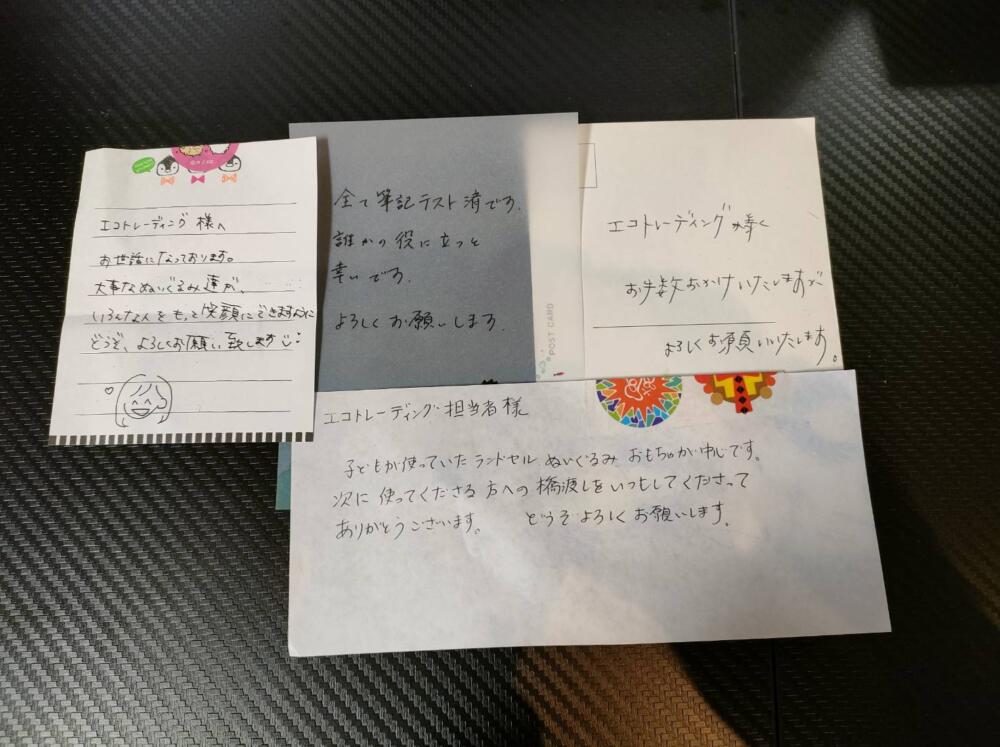 エコトレーディング 様へ
お世話になっております。
大事なぬいぐるみ達が、
いろんな人をもっと笑顔にできますように
どうぞ、よろしくお願い致します
全て筆記テスト済です.
誰かの役に立つと
幸いです.
よろしくお願いします.
POST CARD
エコトレーディング 様
お手数おかけいたしますが
よろしくお願いいたします。
エコトレーディング 担当者様
子どもが使っていたランドセル ぬいぐるみ おもちゃが中心です。
次に使ってくださる方への橋渡しをいつもしてくださって
ありがとうございます。 どうぞよろしくお願いします。